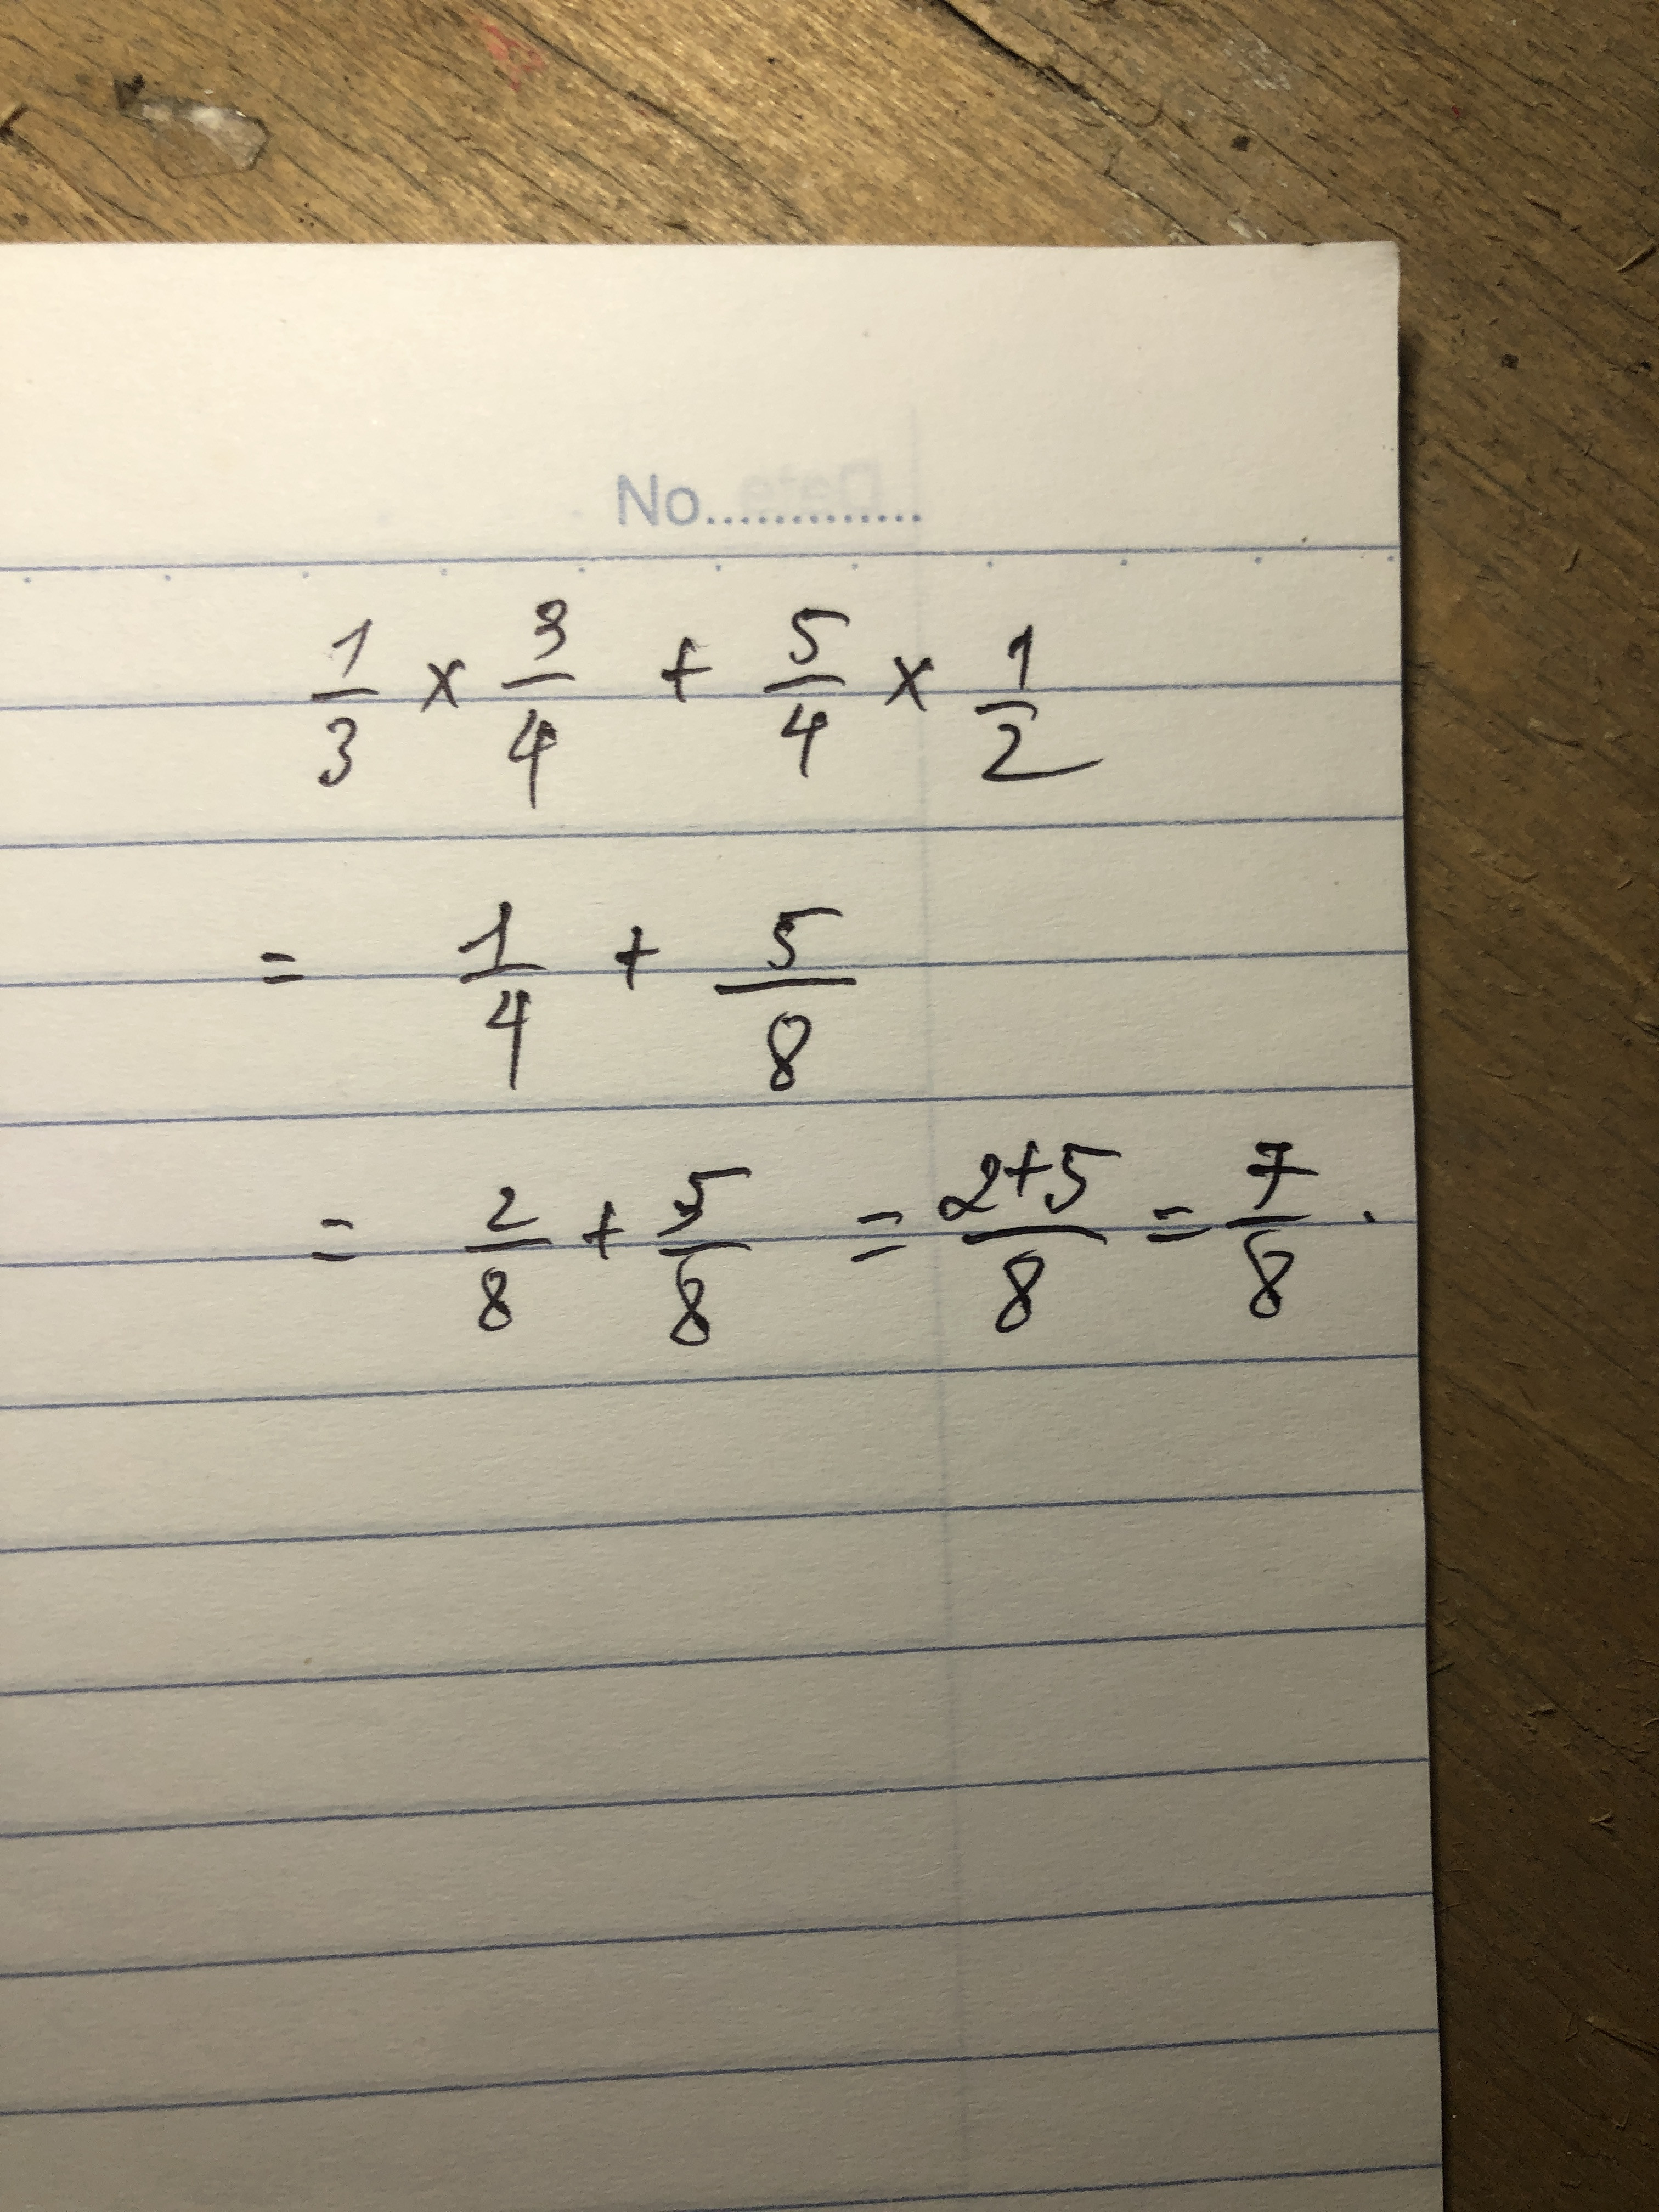 No.............
1/3 × 3/4 + 5/4 × 1/2
= 1/4 + 5/8
= 2/8 + 5/8 = 2+5/8 = 7/8 .